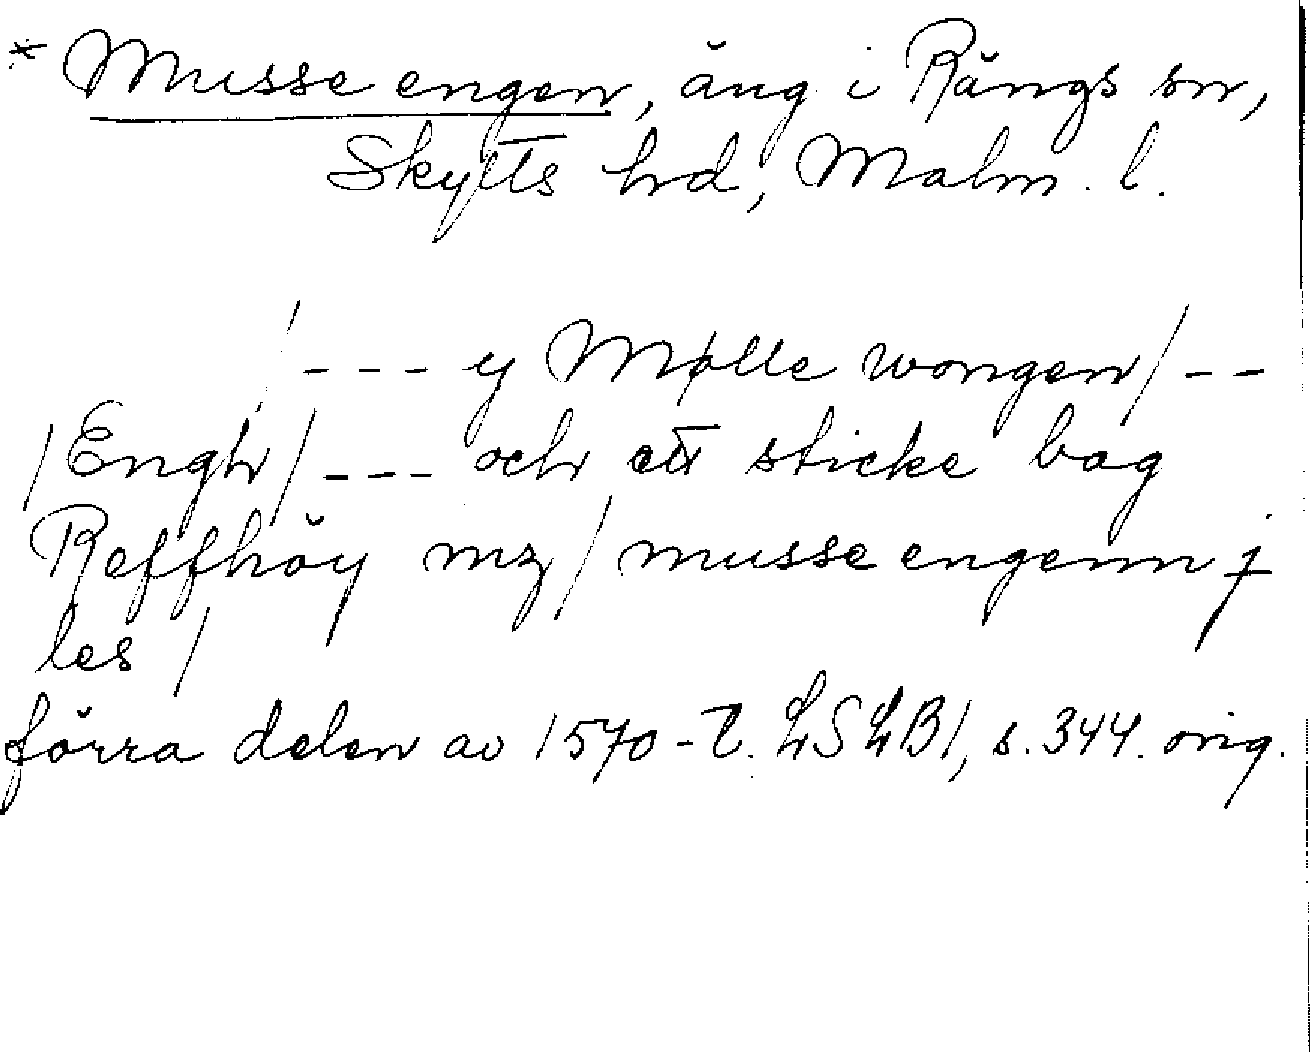 * Musse engen, äng i Rängs sn,
Skytts hd, Malm. l.
/--- y Mølle wongen/--
/Engh/--- och ett sticke bag
Reffhöy mz/musse engenn j
les/
förra delen av 1570-t. LSLB1, s. 344. orig.